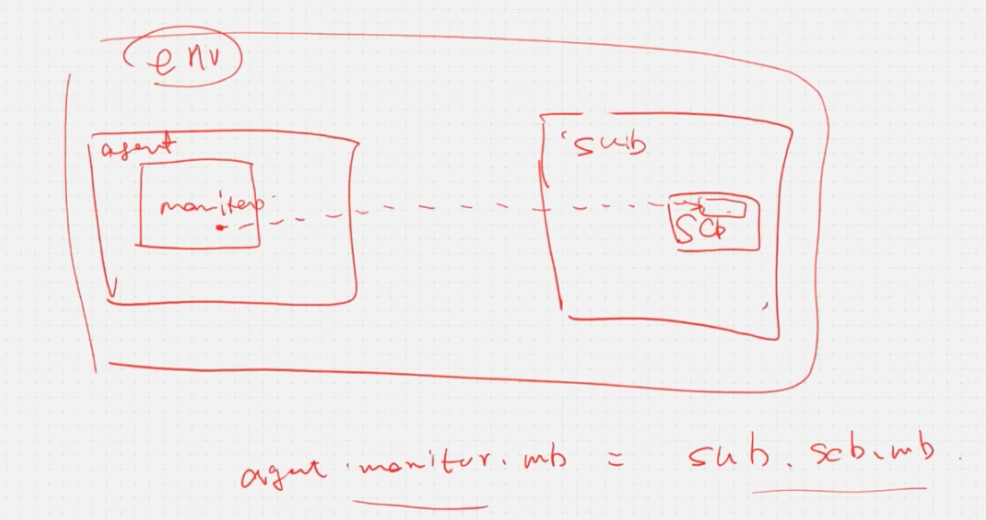 env
agent
monitor
sub
scb
agent.monitor.mb = sub.scb.mb.